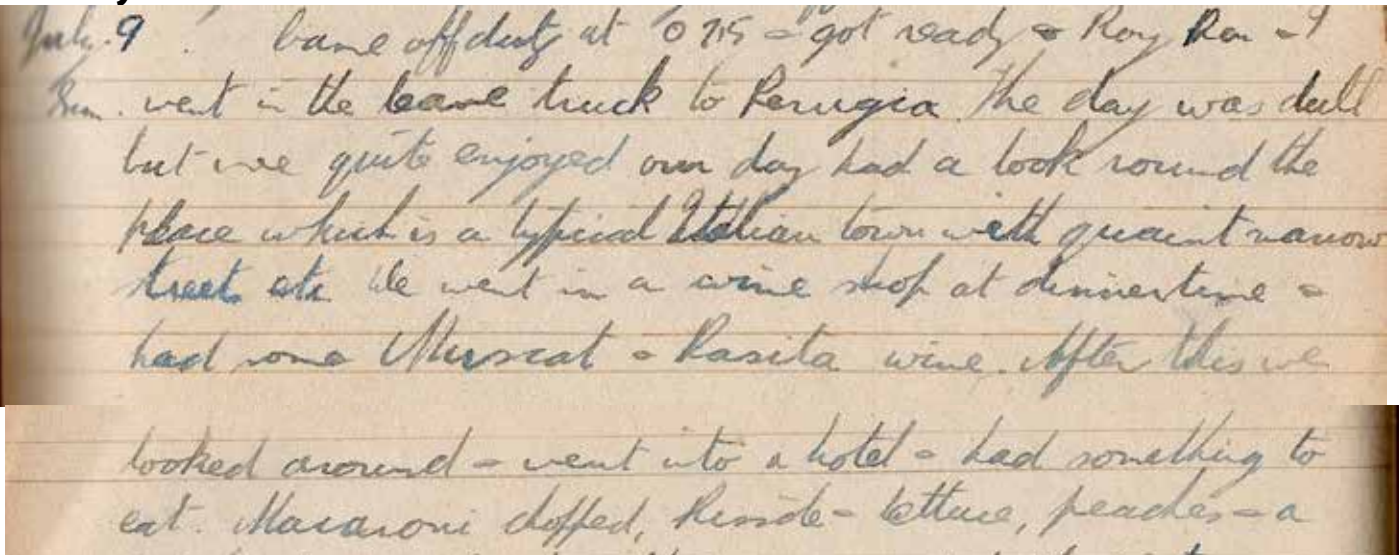 July. 9. Came off duty at 0715 - got ready & Roy Ron - I
Sun. went in the leave truck to Perugia. The day was dull
but we quite enjoyed our day had a look round the
place which is a typical Italian town with quaint narrow
streets etc We went in a wine shop at dinnertime -
had some Muscat - Rasita wine. After this we
looked around - went into a hotel - had something to
eat. Macaroni chopped, - lettuce, peaches - a